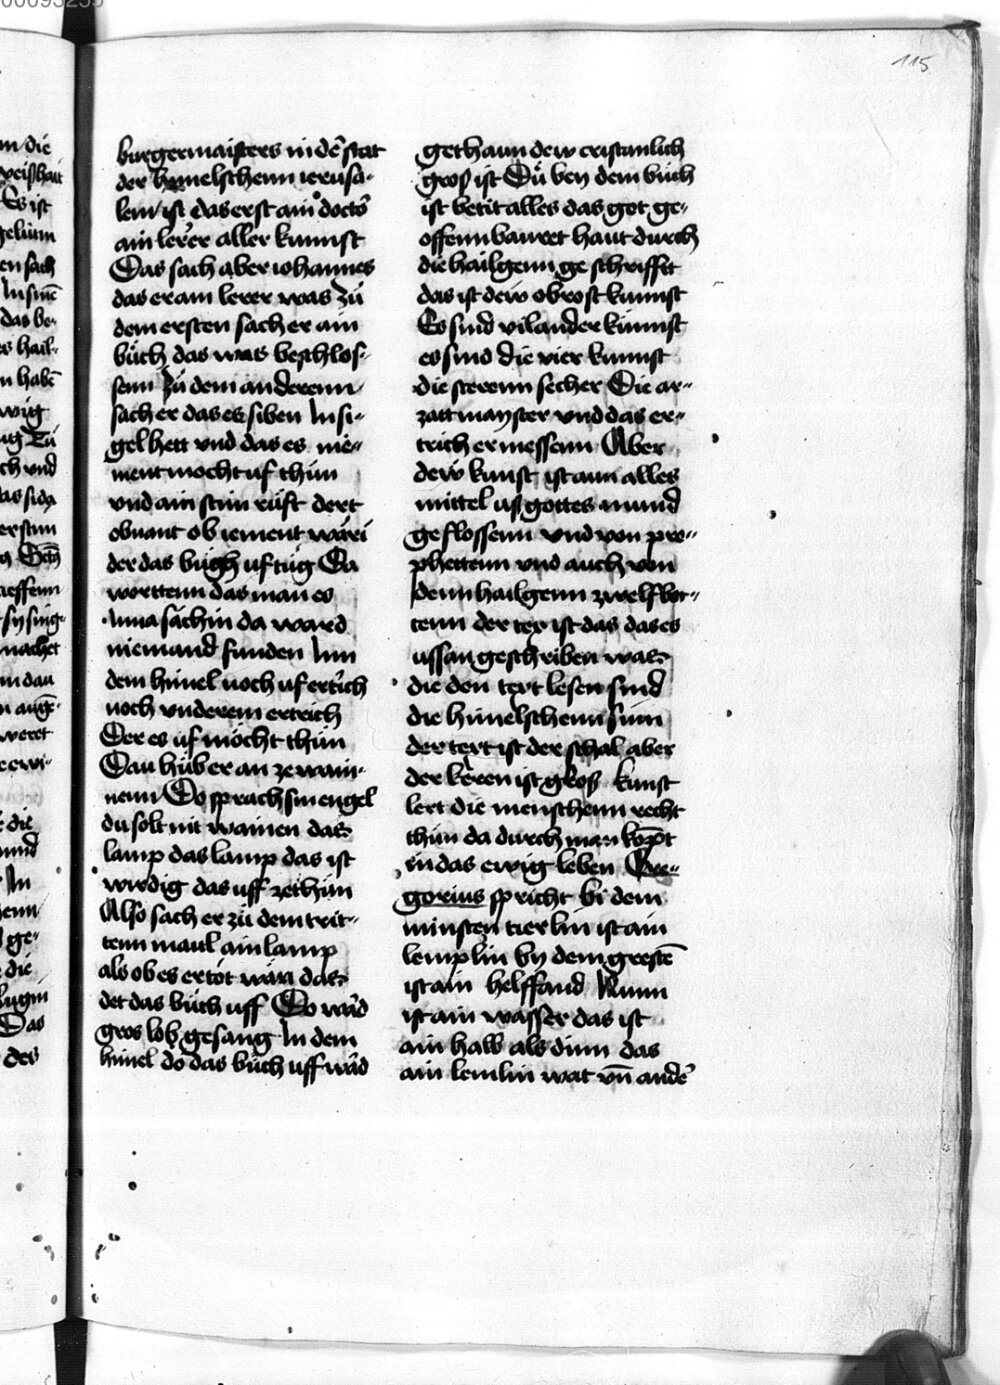 115
burgermaisters in de᷑ stat
der himelschenn ierusa-
lem ist das erst ain docto᷑
ain lerer aller kunnst
Das sach aber iohannes
das er ain lerer was zu
dem ersten sach er ain
bůch das was beschlos-
senn zů dem anderenn
sach er das es siben Insi-
gel hett vnd das es nie-
ment mocht uf thůn
vnd ain stim růft dert
obnant ob iement wäri
der das bůch uf tůg Da
worttenn das man es
Inna sächin da ward
niemand funden Inn
dem himel noch uf ertrich
noch vnderem ertrich
Der es uf möcht thůn
Dau hůb er an ze wain-
nenn Do sprach sin engel
du solt nit wainen das
lamp das lamp das ist
wirdig das uff zethůn
Also sach er zů dem trit-
tenn maul ain lamp
als ob es ertöt wäri das
det das bůch uff Do wa᷑d
gros lob gesang In dem
himel do das bůch uff wa᷑d
gethaun dew cristanlich
gros ist Dů bey dem bůch
ist betit alles das got ge-
offennbauret haut durch
die hailgenn geschrifft
das ist dew obrost kunnst
Es sind vil ander kůnnst
es sind die vier kunnst
die sterenn secher Die ar-
zatt mayster vnd das er-
trich er messenn Aber
dew kunst ist aun alles
mittel us gottes mund
geflossenn vnd von pro-
phettenn vnd auch von
denn hailgenn zwelfbot-
tenn der tex ist das das es
ussan geschriben was
die den text lesen sind
die himelschenn sinn
der text ist der schal aber
der keren ist glos kunst
lert die menschenn recht
thůn da durch man kopt
in das ewig leben Gre-
gorius spricht bi dem
minsten tierlin ist ain
lemplin by dem gresten̄
ist ain helffand Nunn
ist ain wasser das ist
ain halb als dinn das
ain lemlin wat vn̄ ande᷑